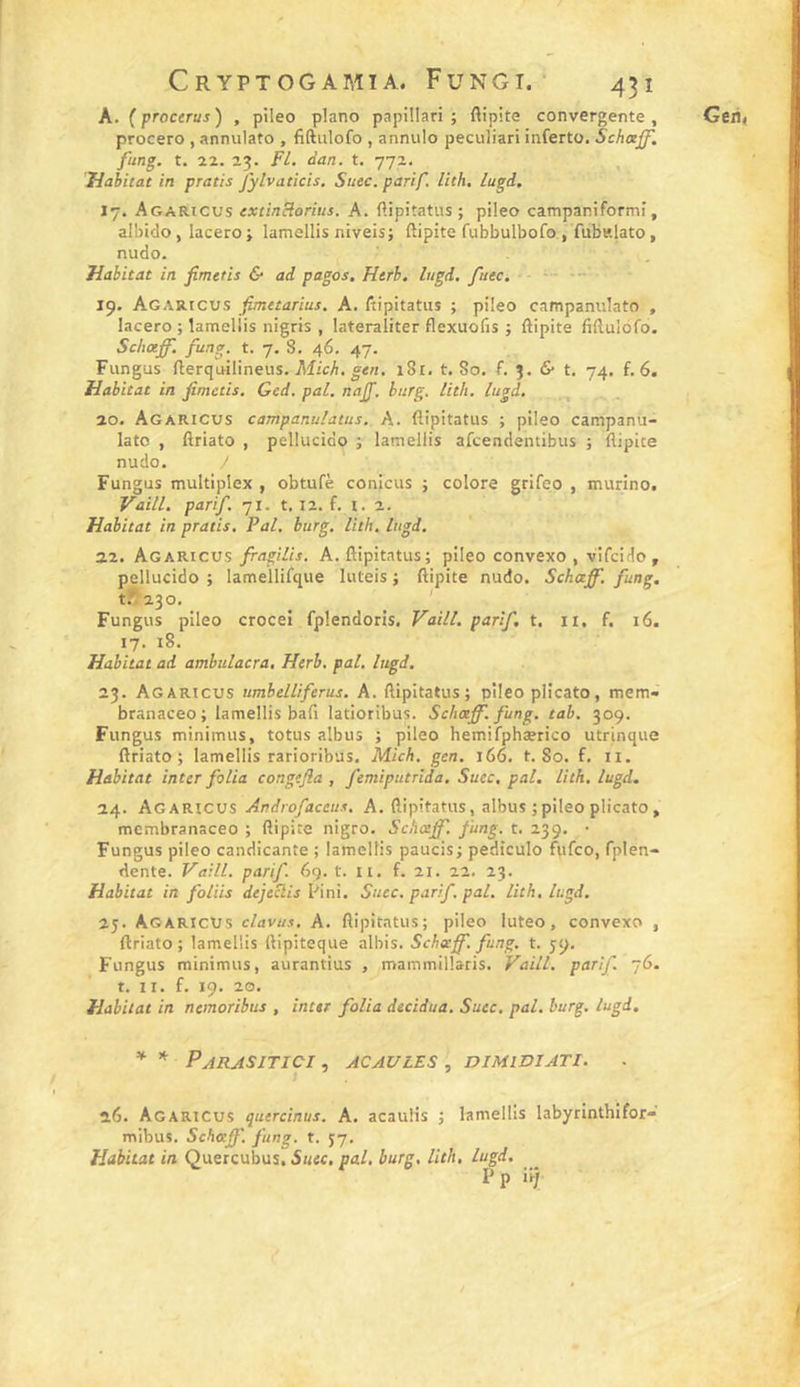 CRYPTOGAMIA. FUNGI. 431
A. (procerus) , pileo plano papillari ; ſtipite convergente , Gen.
procero , annulato , fiſtuloſo , annulo peculiari inferto. Schæff.
fung. t. 22. 23. Fl. dan. t. 772.
Habitat in pratis ſylvaticis. Suec. pariſ. lith. lugd.
17. AGARICUS extinctorius. A. ſtipitatus ; pileo campaniformi,
albido, lacero; lamellis niveis; ſtipite ſubbulboſo , ſubulato,
nudo.
Habitat in fimetis & ad pagos. Herb. lugd. ſuec.
19. AGARICUS fimetarius. A. ſtipitatus ; pileo campanulato ,
lacero ; lamellis nigris , lateraliter flexuoſis ; ſtipite fiſtuloſo.
Schæff. fung. t. 7. 8. 46. 47.
Fungus ſterquilineus. Mich. gen. 181. t. 80. f. 3. & t. 74. f. 6.
Habitat in fimetis. Ged. pal. naſſ. burg. lith. lugd.
20. AGARICUS campanulatus. A. ſtipitatus ; pileo campanu-
lato , ſtriato , pellucido ; lamellis aſcendentibus ; ſtipite
nudo.
Fungus multiplex , obtuſè conicus ; colore griſeo , murino.
Vaill. pariſ. 71. t. 12. f. 1. 2.
Habitat in pratis. Pal. burg. lith. lugd.
22. AGARICUS fragilis. A. ſtipitatus; pileo convexo , viſcido ,
pellucido ; lamelliſque luteis ; ſtipite nudo. Schæff. fung.
t. 230.
Fungus pileo crocei ſplendoris. Vaill. pariſ. t. 11. f. 16.
17. 18.
Habitat ad ambulacra. Herb. pal. lugd.
23. AGARICUS umbelliferus. A. ſtipitatus ; pileo plicato, mem-
branaceo ; lamellis baſi latioribus. Schæff. fung. tab. 309.
Fungus minimus, totus albus ; pileo hemiſphærico utrinque
ſtriato ; lamellis rarioribus. Mich. gen. 166. t. 80. f. 11.
Habitat inter folia congeſta , ſemiputrida. Suec. pal. lith. lugd.
24. AGARICUS Androſaceus. A. ſtipitatus, albus ; pileo plicato,
membranaceo ; ſtipite nigro. Schæff. fung. t. 239.
Fungus pileo candicante ; lamellis paucis; pediculo fuſco, ſplen-
dente. Vaill. pariſ. 69. t. 11. f. 21. 22. 23.
Habitat in foliis dejectis Pini. Suec. pariſ. pal. lith. lugd.
25. AGARICUS clavus. A. ſtipitatus; pileo luteo, convexo ,
ſtriato ; lamellis ſtipiteque albis. Schæff. fung. t. 59.
Fungus minimus, aurantius , mammillaris. Vaill. pariſ. 76.
t. 11. f. 19. 20.
Habitat in nemoribus , inter folia decidua. Suec. pal. burg. lugd.
* * PARASITICI , ACAULES , DIMIDIATI.
26. AGARICUS quercinus. A. acaulis ; lamellis labyrinthifor-
mibus. Schæff. fung. t. 57.
Habitat in Quercubus. Suec. pal. burg. lith. lugd.
P p iij